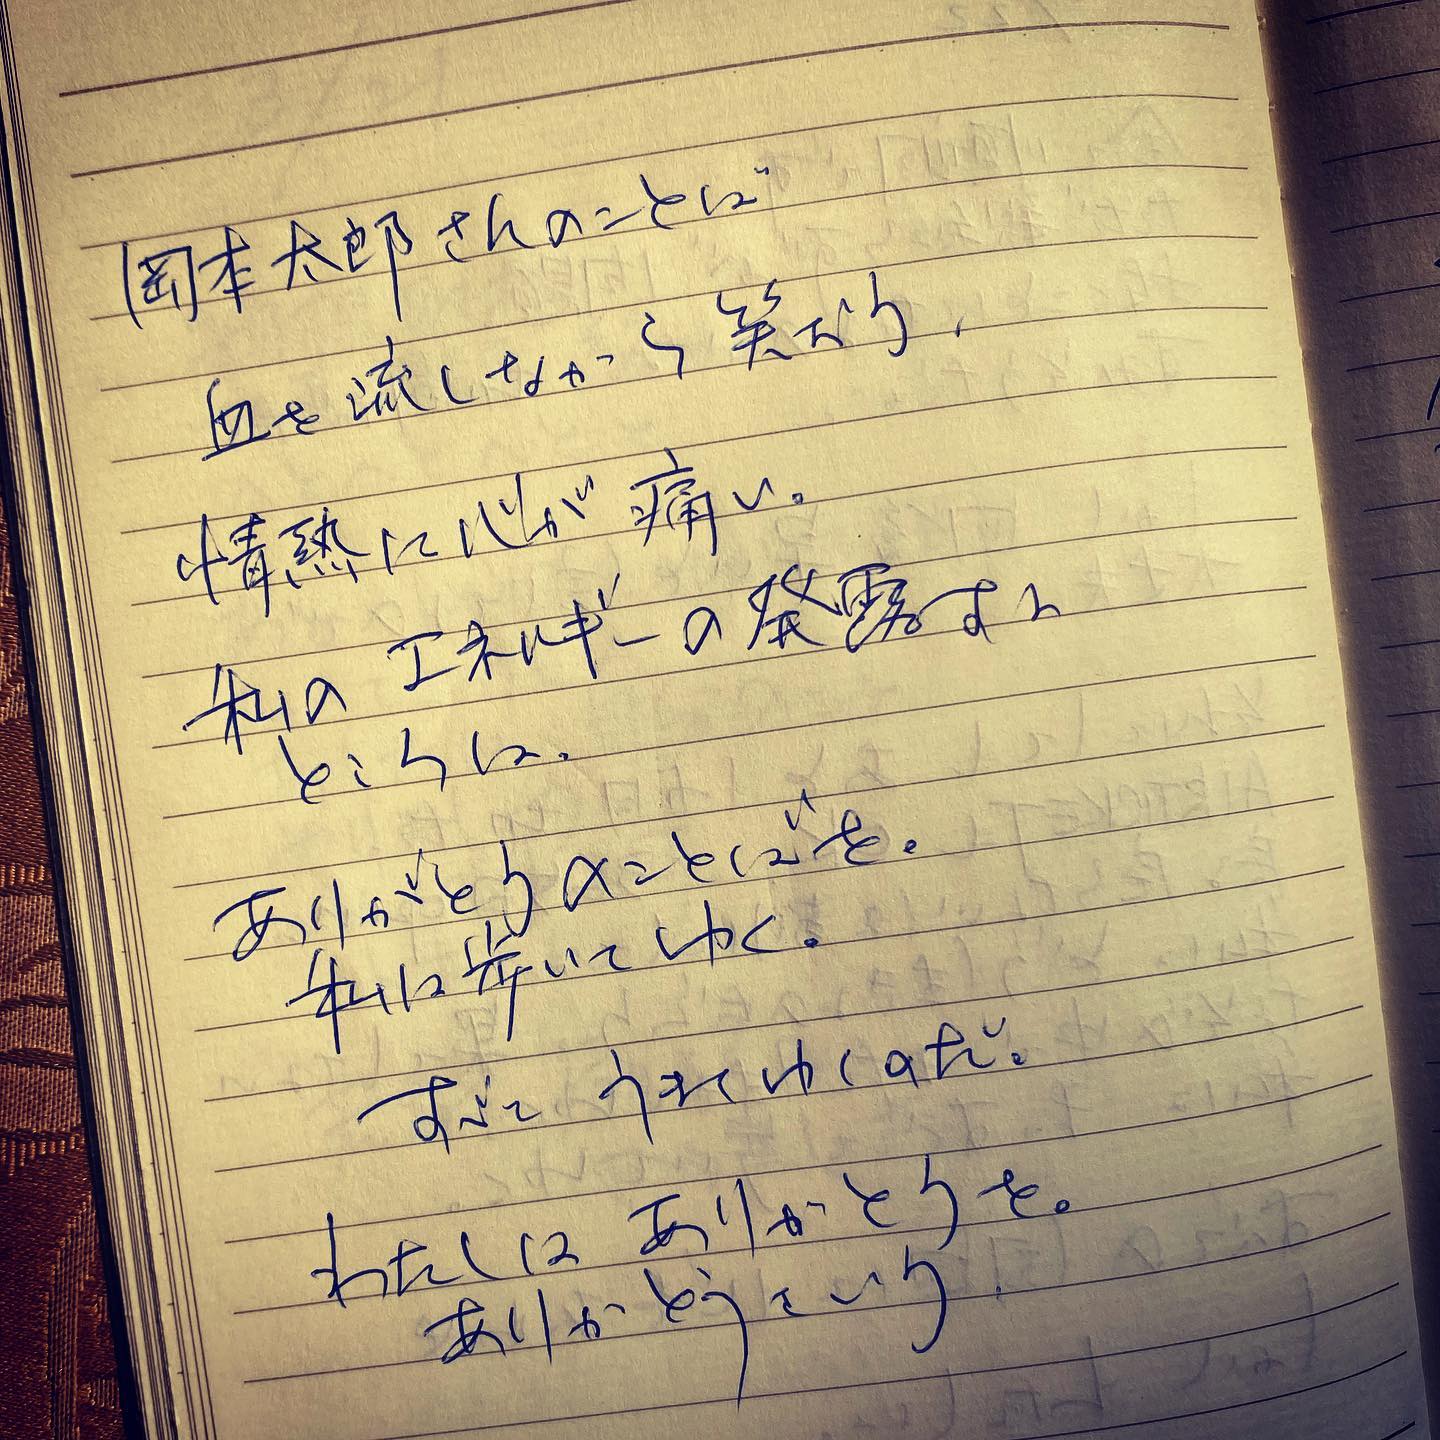 岡本太郎さんのことば
血を流しながら笑おう、
情熱に心が痛い。
私のエネルギーの発露する
ところは、
ありがとうのことばを。
私は歩いてゆく。
すべて うまくゆくのだ。
わたしは ありがとうを。
ありがとうという